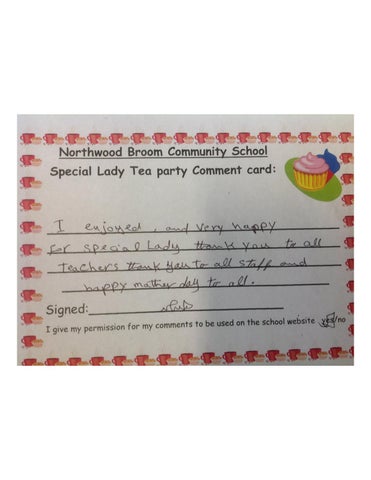 Northwood Broom Community School
Special Lady Tea party Comment card:
I enjoyed, and very happy
for special Lady thank you to all
Teachers thank you to all staff and
happy mother day to all.
Signed:
I give my permission for my comments to be used on the school website yes/no